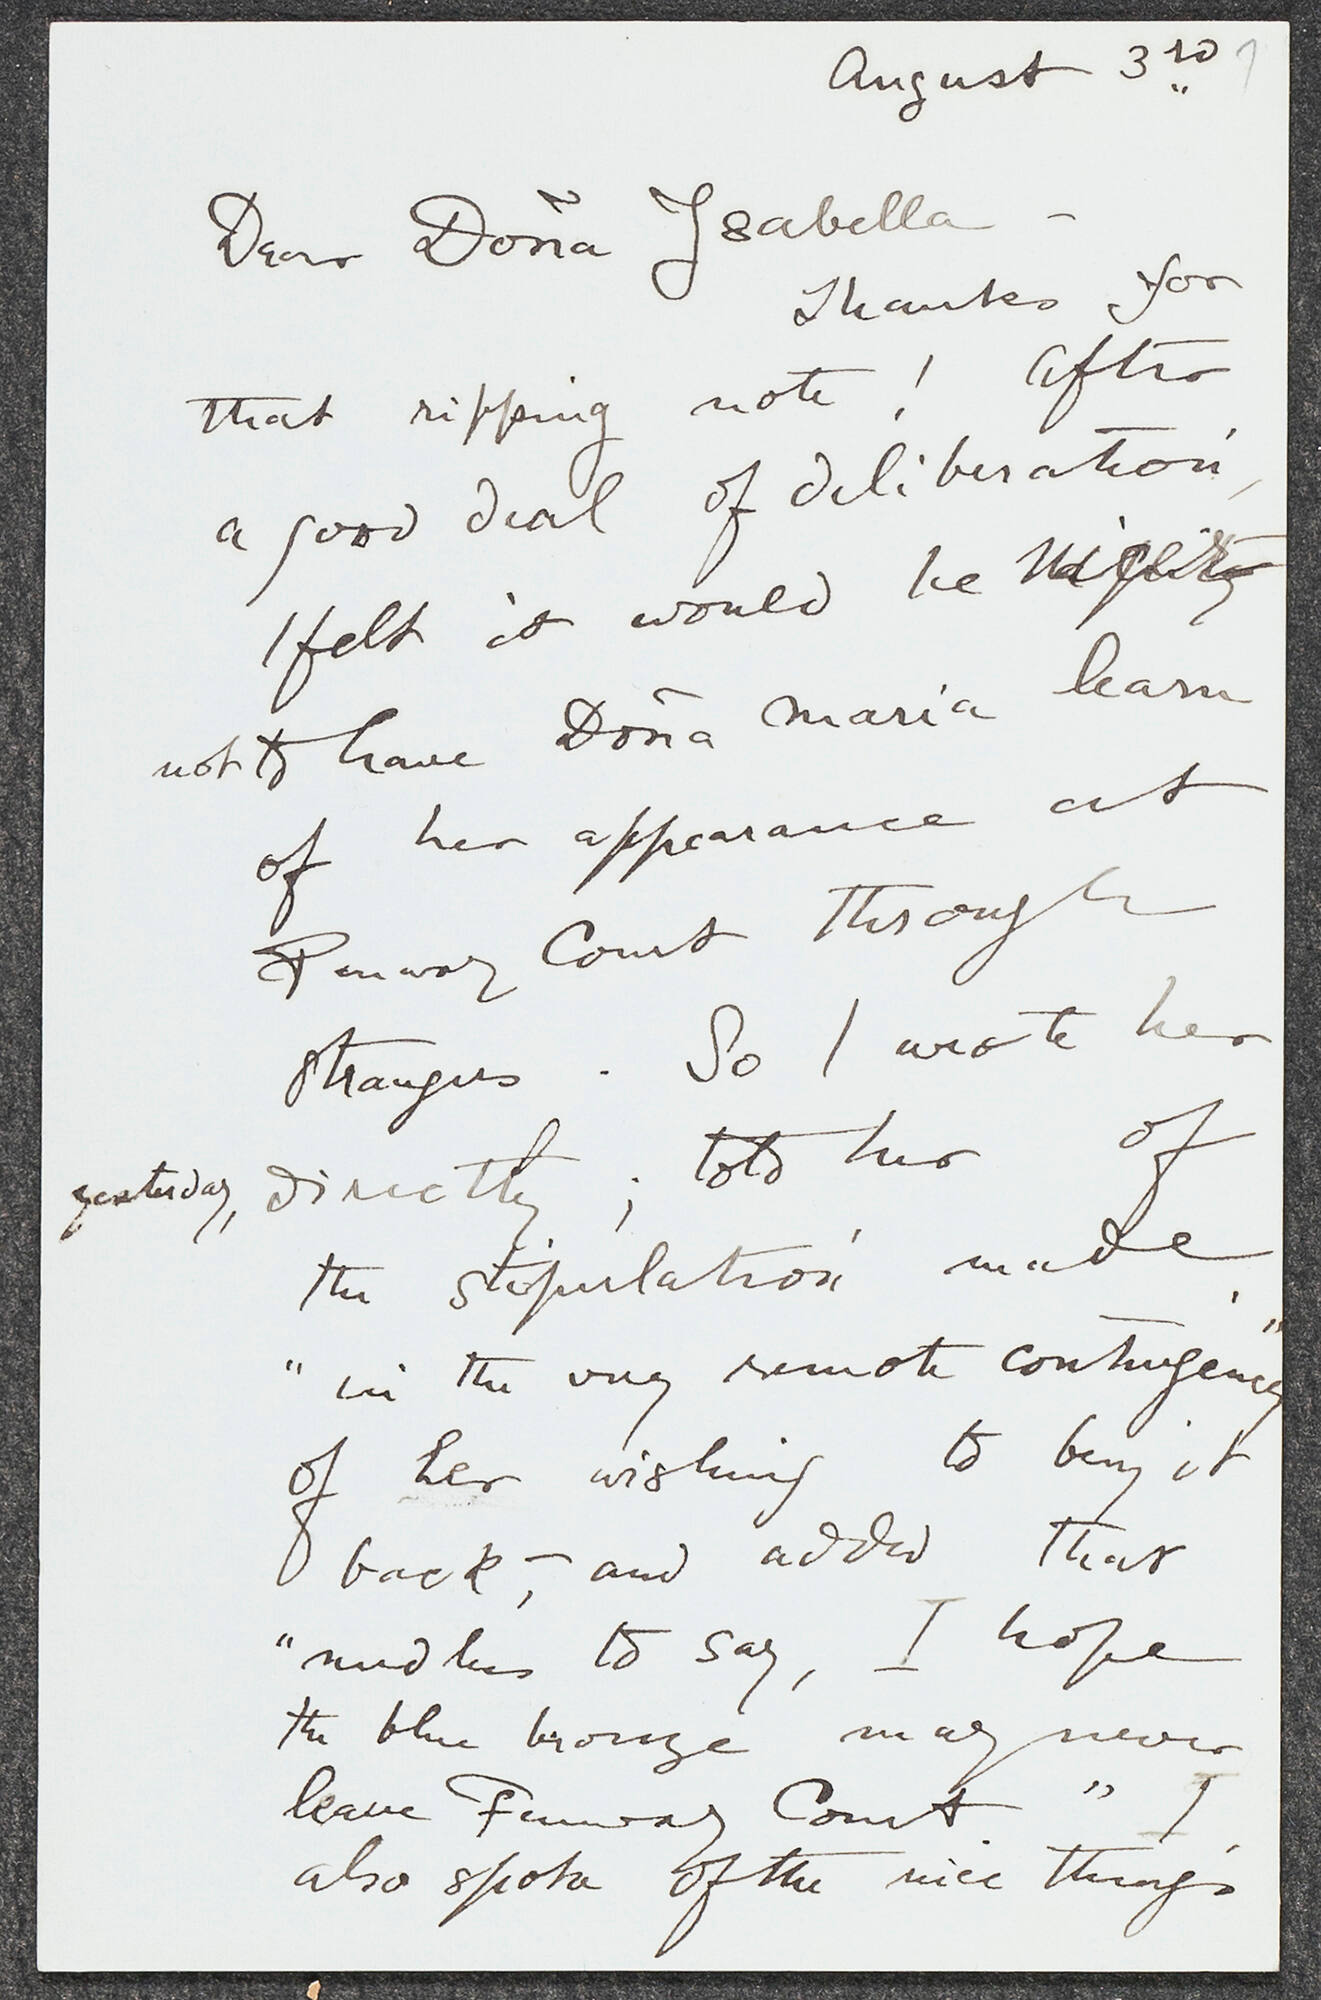 August 3rd
Dear Doña Ysabella -
Thanks for
that ripping note! After
a good deal of deliberation,
I felt it would be
not to have Doña Maria learn
of her appearance at
Fenway Court through
strangers. So I wrote her
yesterday, directly; told her of
the stipulation made
"in the very remote contingency"
of her wishing to buy it
back, - and added that
"needless to say, I hope
the blue bronze may never
leave Fenway Court" I
also spoke of the nice things